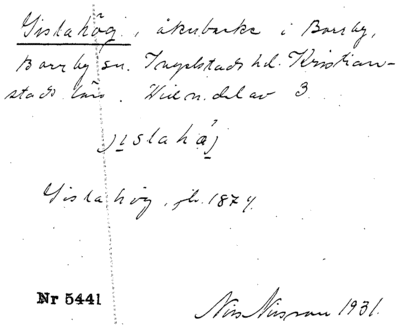 Gislahög, åkerbacke i Borrby,
Borrby sn. Ingelstads hd. Kristian-
stads län. Hid n. del av 3
jıslahȧj
Gisla hög, jb. 1874.
Nr 5441
Nils Nilsson 1931.